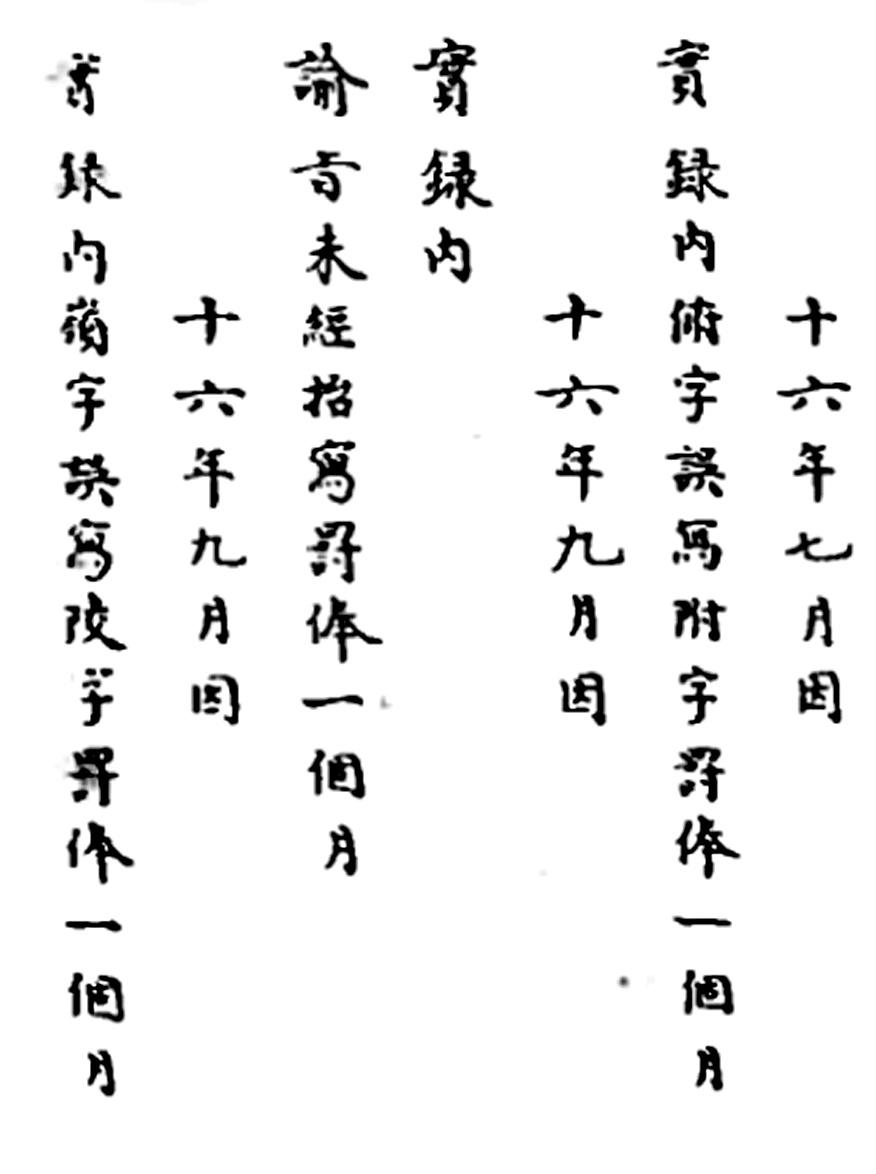 十六年七月因
實録内俯字誤寫附字罸俸一個月
十六年九月因
實録内
諭旨未經招寫罸俸一個月
十六年九月因
實録内嶺字誤寫陵字罸俸一個月